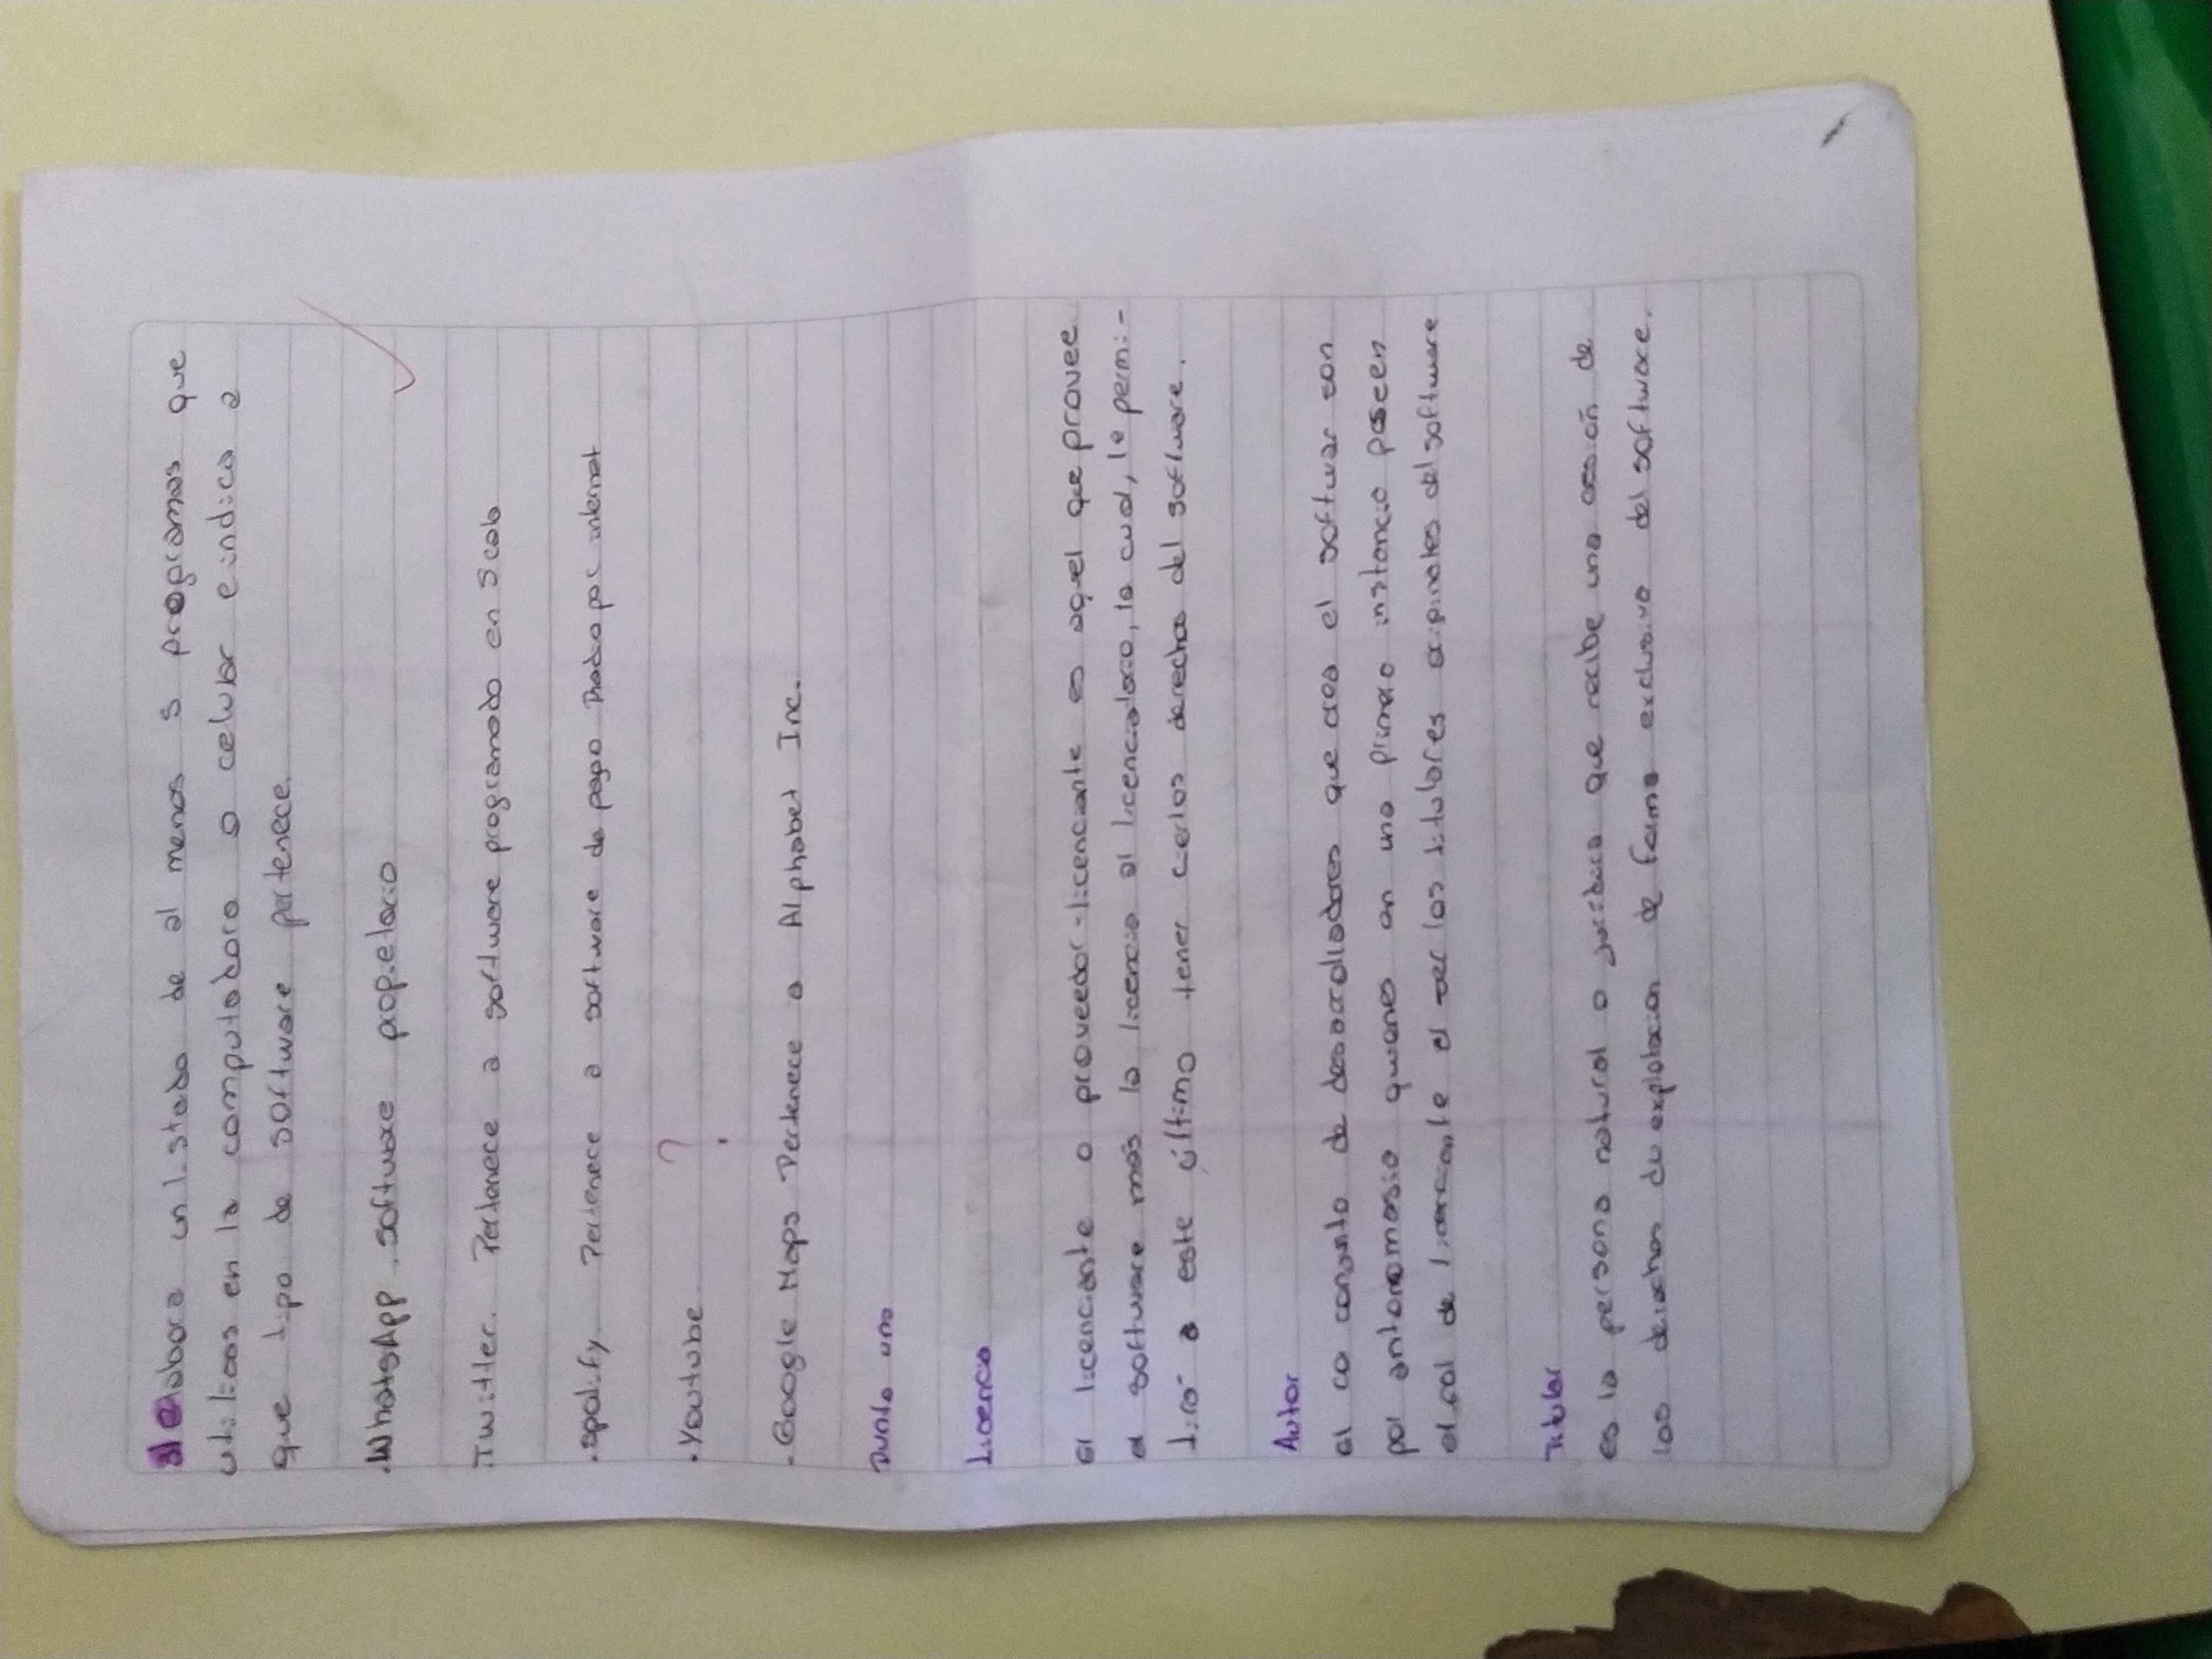 elabora un listado de al menos 5 programas que
utilizas en la computadora o celular e indica a
que tipo de software pertenece.
.WhatsApp .software propietario
.Twitter. Pertenece a software programado en Scab
.spotify Pertenece a software de pago por internet
.Youtube ?
.Google Maps Pertenece a Alphabet Inc.
Punto uno
Licencia
el licenciante o proveedor-licenciante es aquel que provee
el software más la licencia al licenciatario, la cual, le permi-
tirá a este último tener ciertos derechos del software.
Autor
el co conjunto de desarrolladores que crea el softwar son
por antonomasia quienes en una primera instancia poseen
el rol de licenciante el ser los titulares originales del software
Titular
es la persona natural o juridica que recibe una cesión de
los derechos de explotacion de forma exclusiva del software.